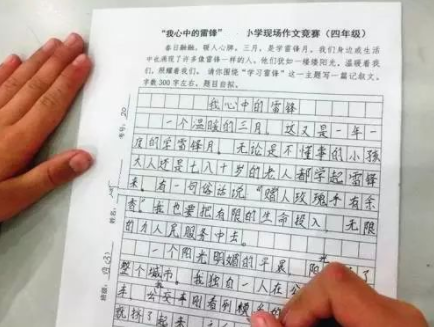 “我心中的雷锋” 小学现场作文竞赛（四年级）
春日融融，暖人心脾。三月，是学雷锋月。我们身边或生活
中也涌现了许多像雷锋一样的人，他们犹如一缕缕阳光，温暖着我
们，照耀着我们。请你围绕“学习雷锋”这一主题写一篇记叙文。
字数300字左右。题目自拟。
我心中的雷锋
一个温暖的三月。这又是一年一
度的学雷锋月。无论是不懂事的小孩
大人还是七八十岁的老人都学起雷锋
来。有一句俗话说“赠人玫瑰手有余
香”我也要把有限的生命投入无限
的为人民服务中去。
一个阳光明媚的早晨，阳 了
整个城市。我独自一人在公
车。公交车刚看到
考号：20
姓名：
班级：